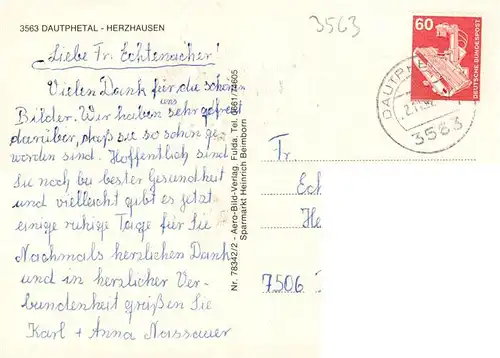 3563 DAUTPHETAL - HERZHAUSEN
Liebe Fr. Echternacher!
Vielen Dank für die schönen
Bilder. Wir haben uns sehr gefreut
darüber, daß sie so schön ge-
worden sind. Hoffentlich sind
Sie noch bei bester Gesundheit
und vielleicht gibt es jetzt
einige ruhige Tage für Sie
Nochmals herzlichen Dank
und in herzlicher Ver-
bundenheit grüßen Sie
Karl + Anna Nassauer
Nr. 78342/2 - Aero-Bild-Verlag, Fulda, Tel. 0661/74605
Sparmarkt Heinrich Beimborn
3563
60
DEUTSCHE BUNDESPOST
DAUTPH
3563
Fr.
Ech
He
7506